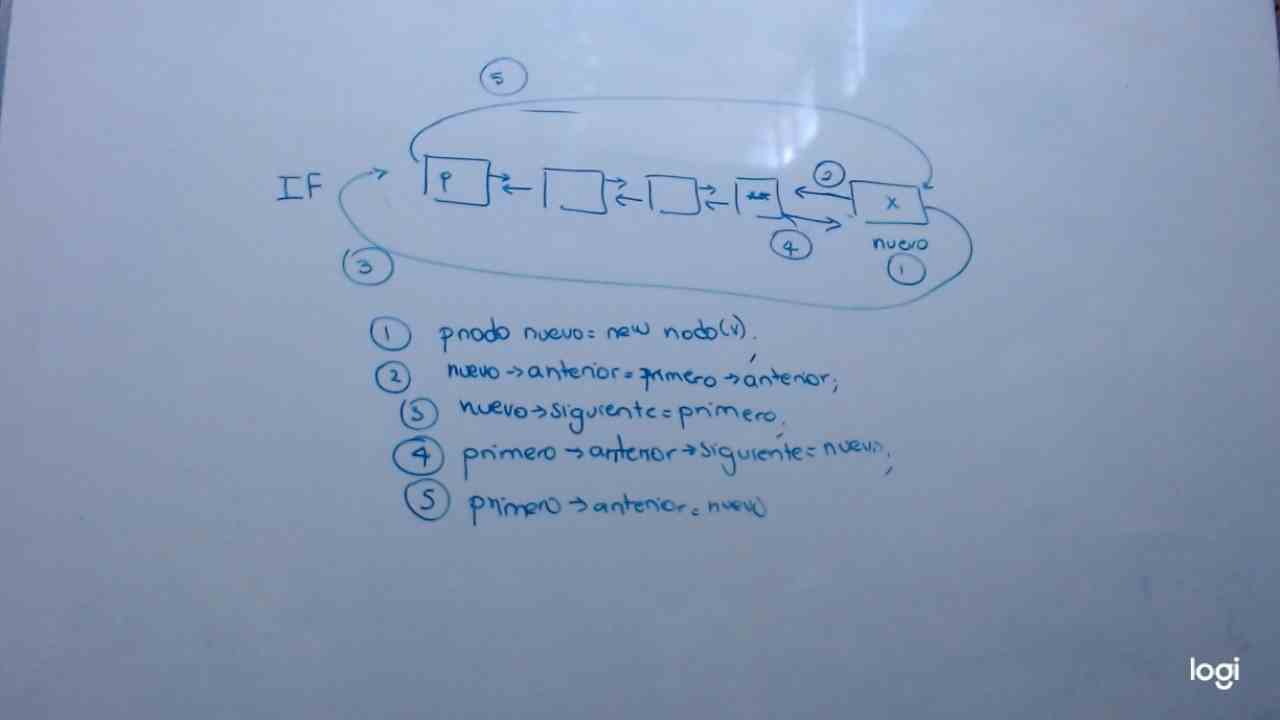 5
IF
P
2
X
3
4
nuevo
1
1 pnodo nuevo= new nodo(v);
2 nuevo→anterior=primero→anterior;
3 nuevo→siguiente=primero;
4 primero→anterior→siguiente=nuevo;
5 primero→anterior=nuevo
logi